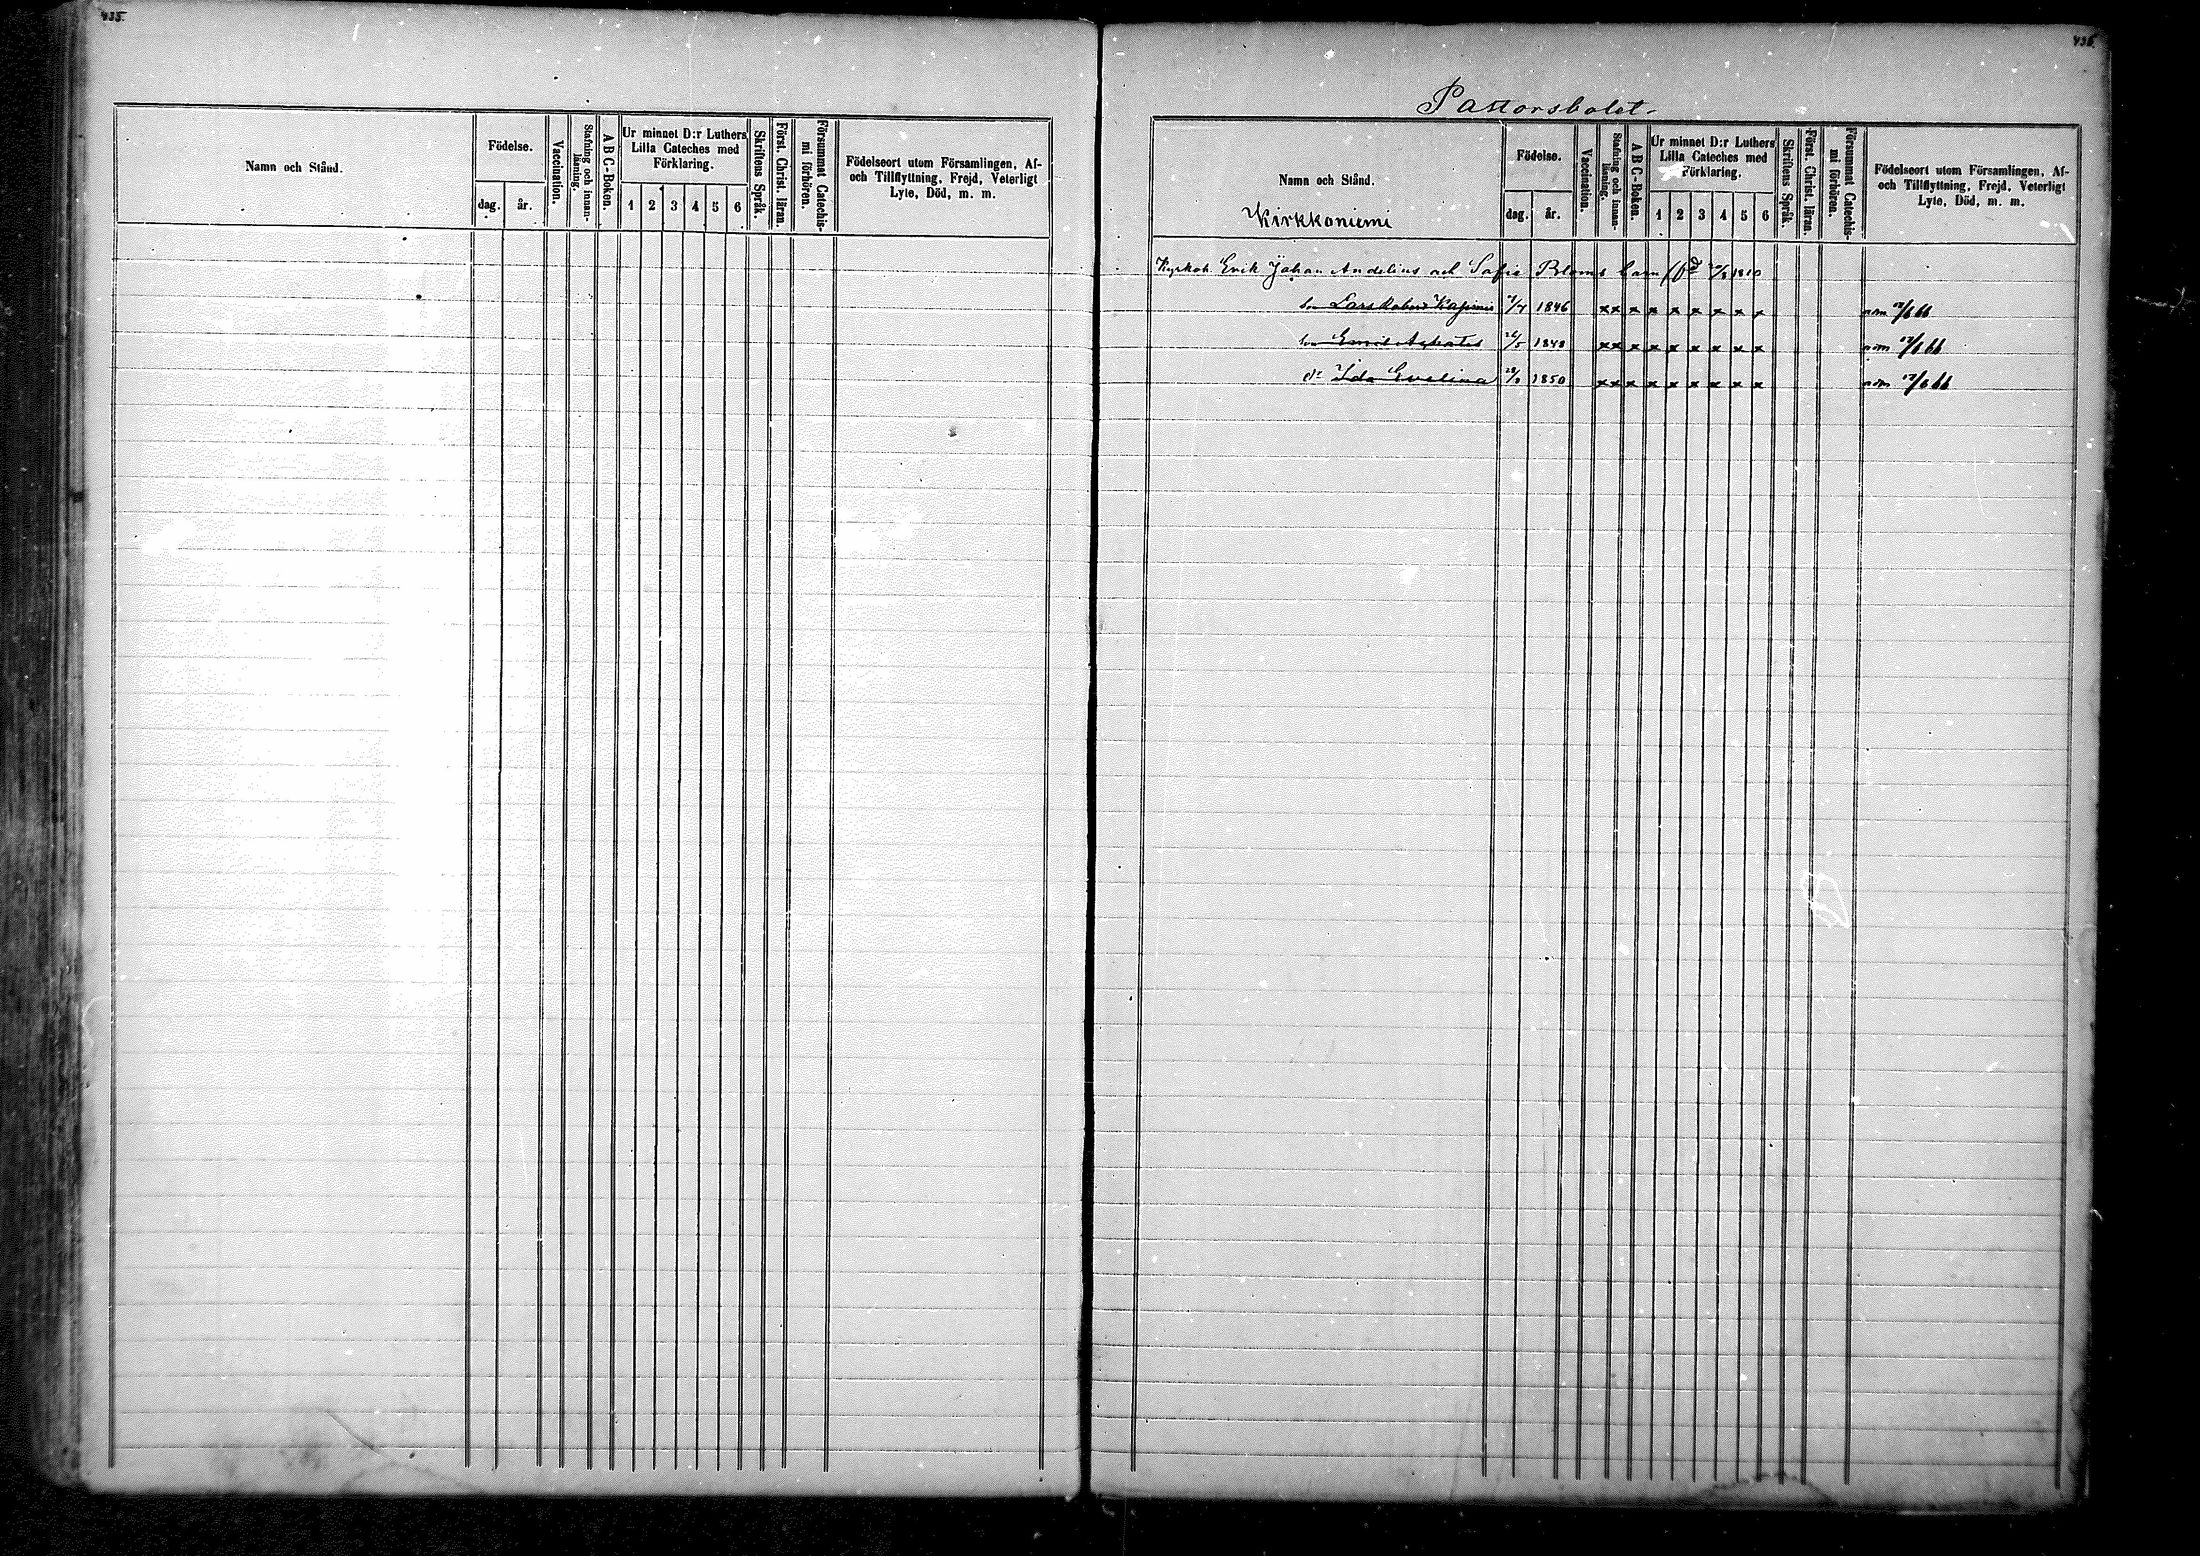 435.
Namn och Stånd.
Födelse.
dag.
år.
Vaccination.
Stafning och innan-
läsning.
A B C-Boken.
Ur minnet D:r Luthers
Lilla Cateches med
Förklaring.
1 2 3 4 5 6
Skriftens Språk.
Först. Christ. läran.
Försummat Catechis-
mi förhören.
Födelseort utom Församlingen, Af-
och Tillflyttning, Frejd, Veterligt
Lyte, Död, m. m.
436.
Pastorsbolet
Namn och Stånd.
Kirkkoniemi
Födelse.
dag.
år.
Vaccination.
Stafning och innan-
läsning.
A B C-Boken.
Ur minnet D:r Luthers
Lilla Cateches med
Förklaring.
1 2 3 4 5 6
Skriftens Språk.
Först. Christ. läran.
Försummat Catechis-
mi förhören.
Födelseort utom Församlingen, Af-
och Tillflyttning, Frejd, Veterligt
Lyte, Död, m. m.
Kyrkoh. Erik Johan Andelius och Sofia Bloms barn 1810
Lars Robert 1846 x x x x x x x x x
Emil 1848 x x x x x x x x x
Ida Evelina 1850 x x x x x x x x x